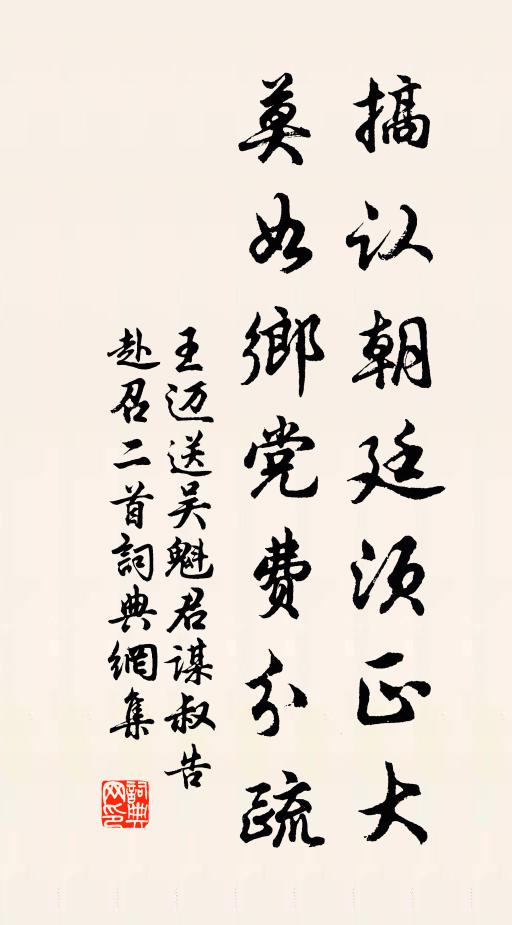 搞认朝廷须正大
莫如鄉党费分疏
王迈送吴魁君谋叔告
赴召二首詞典網集
詞典网印